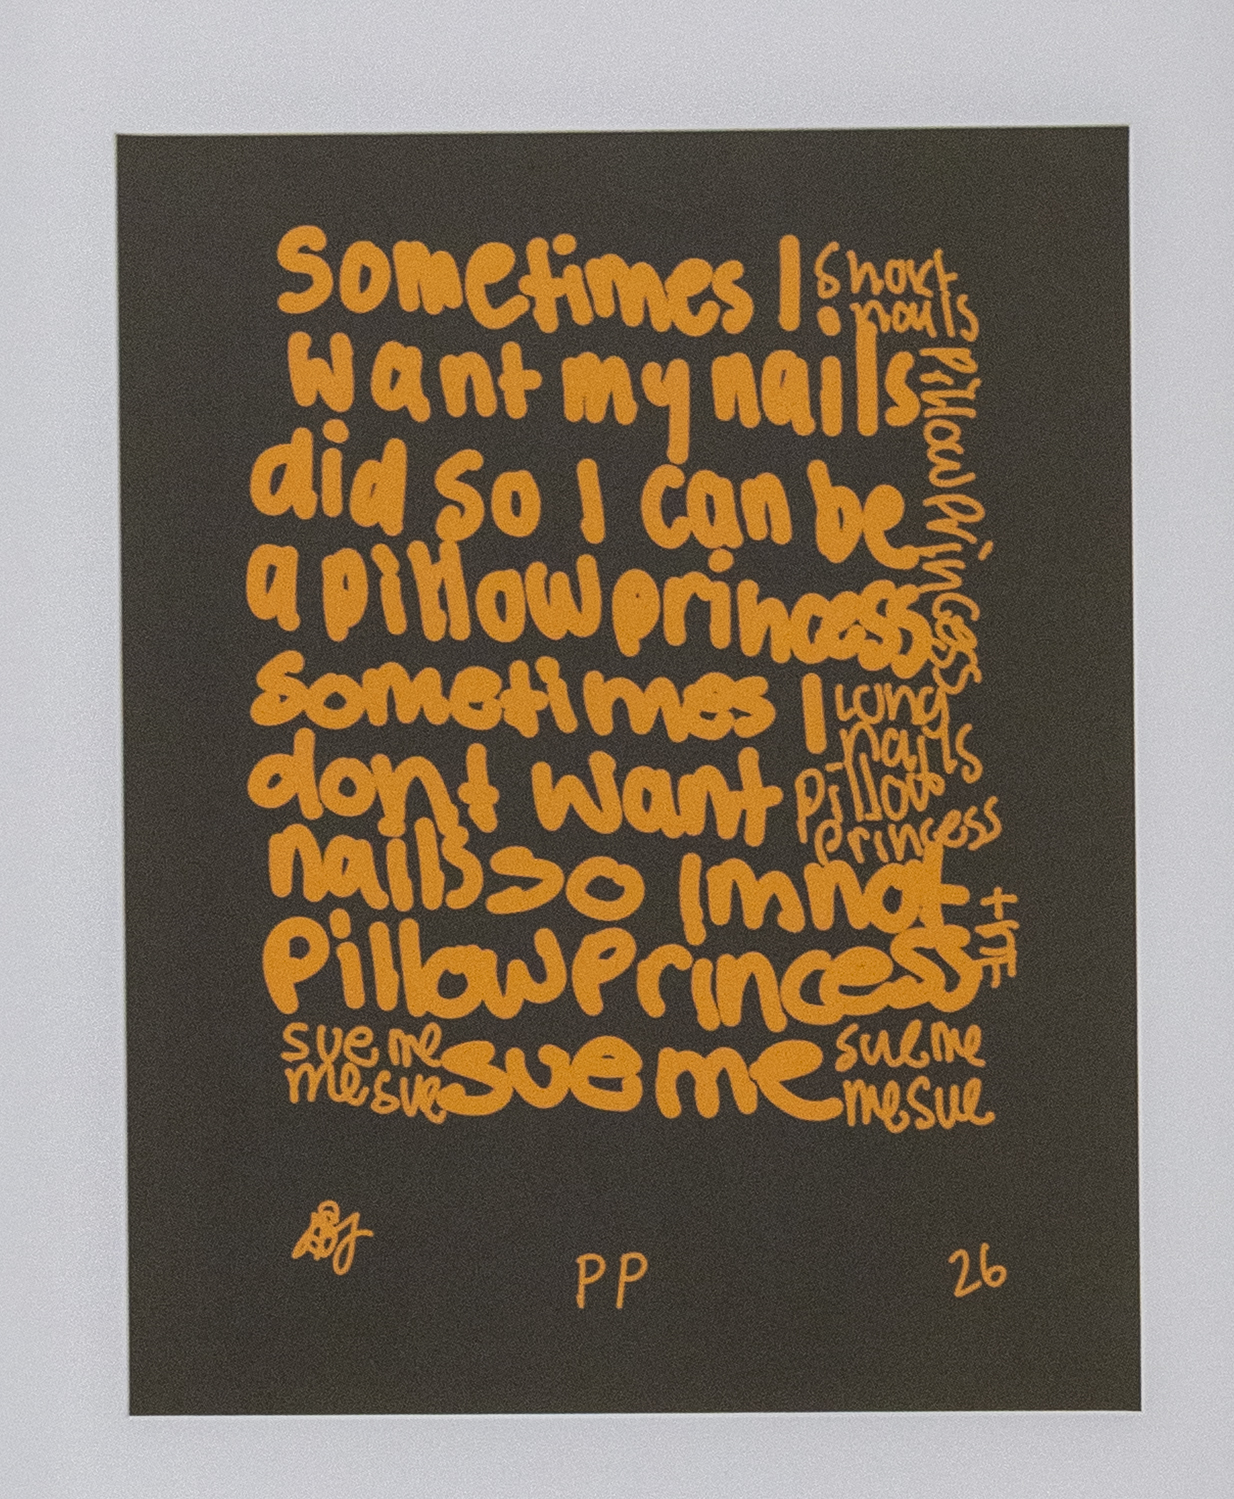 Sometimes I
want my nails
did so I can be
a pillow princess
sometimes I
dont want
nails so Im not
Pillow Princess
sue me
short
nails
Pillow Princess
long
nails
pillow
princess
the
sue me
me sue
sue me
me sue
PP
26